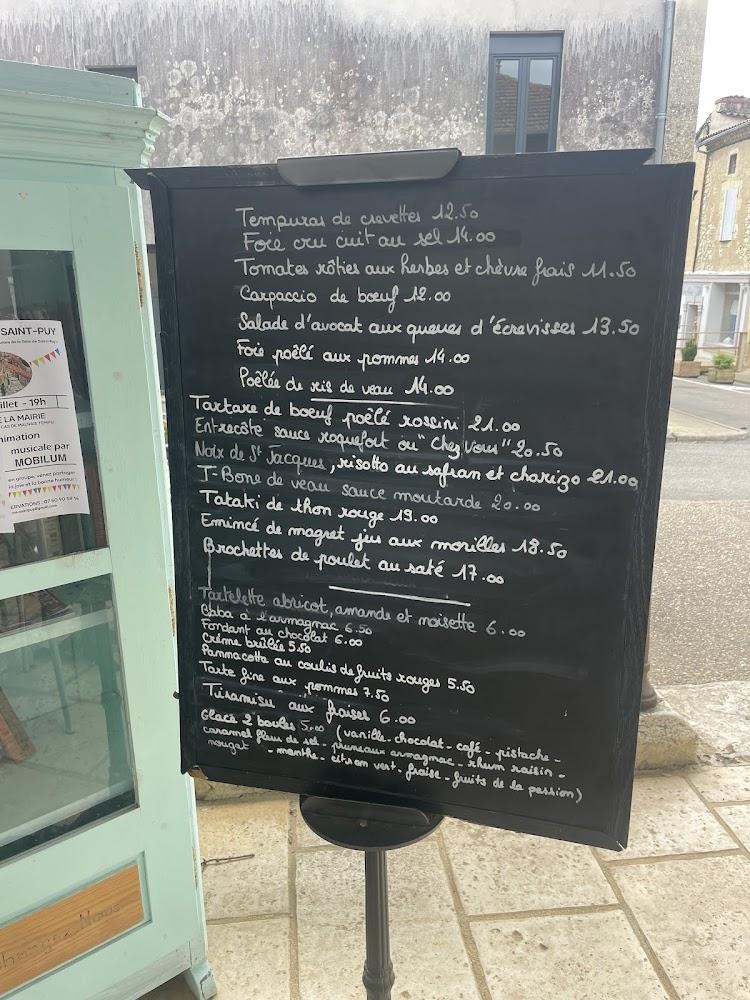 Tempuras de crevettes 12.50
Foie cru cuit au sel 14.00
Tomates rôties aux herbes et chèvre frais 11.50
Carpaccio de bœuf 12.00
Salade d'avocat aux queues d'écrevisses 13.50
Foie poêlé aux pommes 14.00
Poêlée de ris de veau 14.00
Tartare de bœuf poêlé rossini 21.00
Entrecôte sauce roquefort ou "Chez Vous" 20.50
Noix de St Jacques, risotto au safran et chorizo 21.00
T-Bone de veau sauce moutarde 20.00
Tataki de thon rouge 19.00
Emincé de magret jus aux morilles 18.50
Brochettes de poulet au saté 17.00
Tartelette abricot, amande et noisette 6.00
Baba à l'armagnac 6.50
Fondant au chocolat 6.00
Crème brûlée 5.50
Pannacotta au coulis de fruits rouges 5.50
Tarte fine aux pommes 7.50
Tiramisu aux fraises 6.00
Glace 2 boules 5.00 (vanille - chocolat - café - pistache -
caramel fleur de sel - pruneaux armagnac - rhum raisin -
nougat - menthe - citron vert - fraise - fruits de la passion)
SAINT-PUY
illet - 19h
E LA MAIRIE
CAS DE MAUVAIS TEMPS)
nimation
musicale par
MOBILUM
en groupe, venez partager
la joie et la bonne humeur
changez Nous